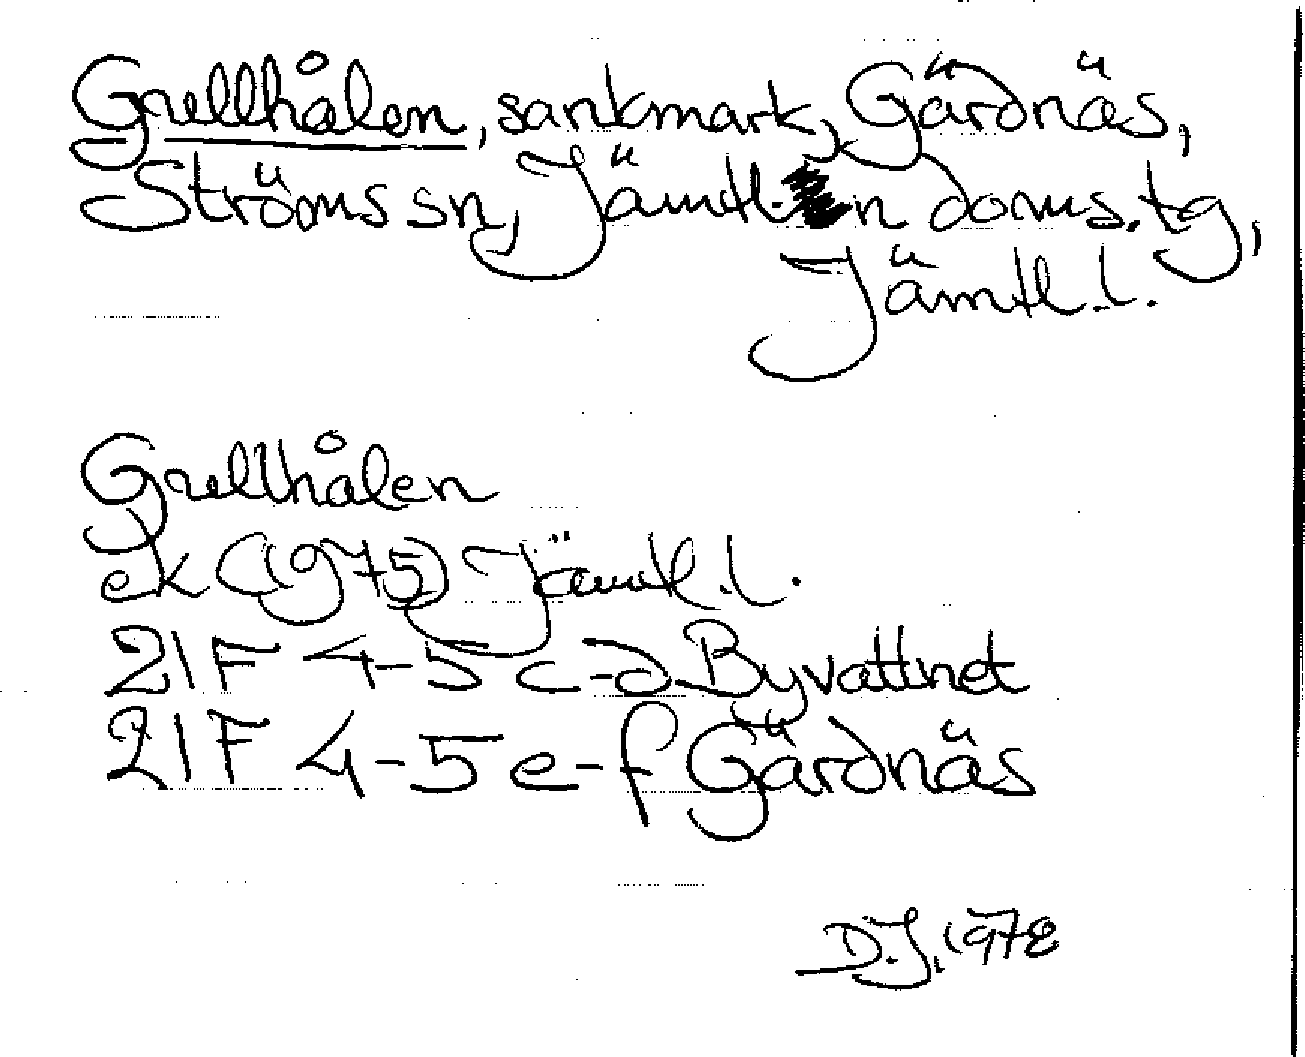 Grellhålen, sankmark, Gärdnäs,
Ströms sn, Jämtl. n doms. tg,
Jämtl. l.
Grellhålen
ek (1975) Jämtl. l.
21F 4-5 c-d Byvattnet
21F 4-5 e-f Gärdnäs
D.J. 1978